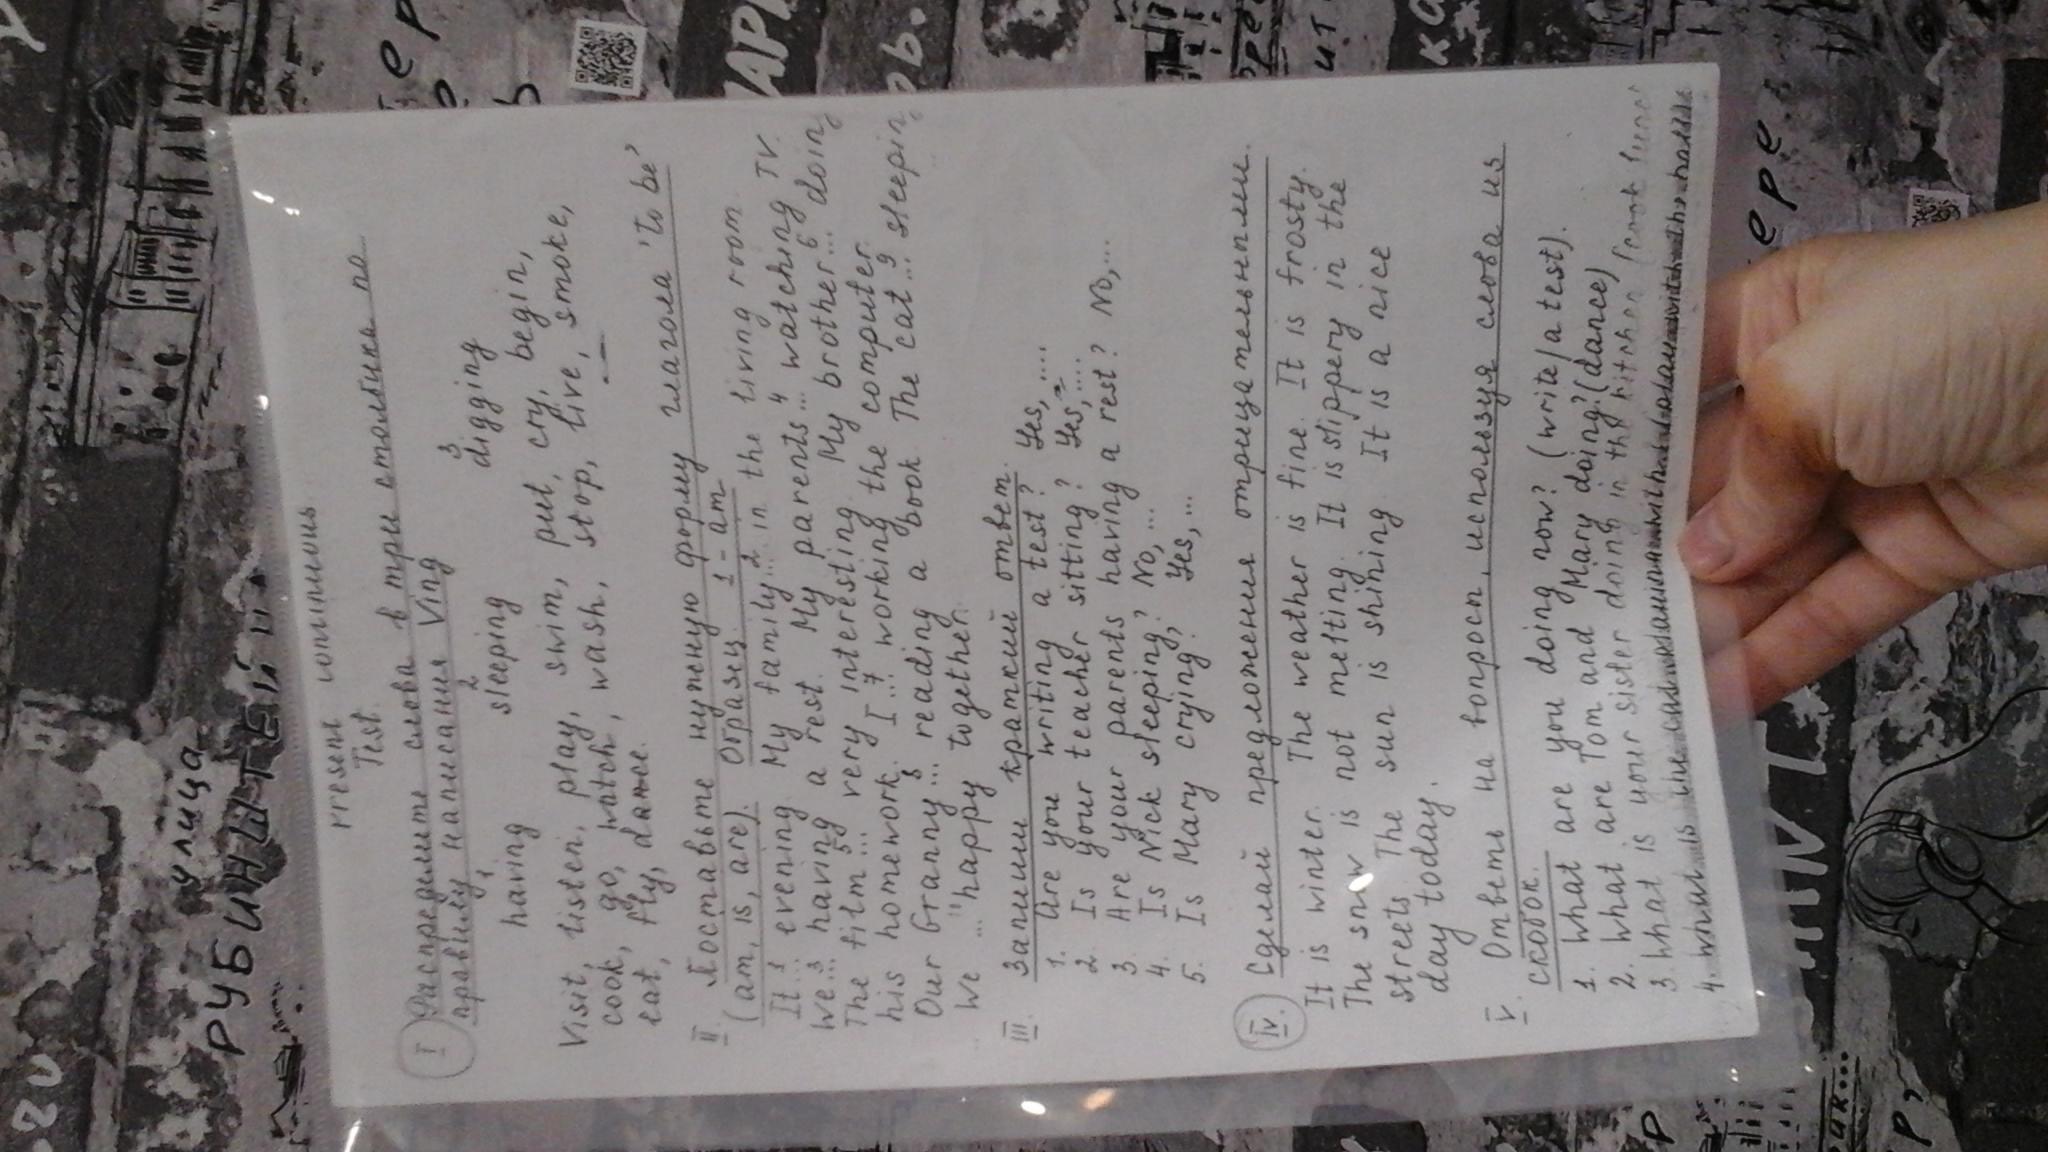 Present continuous
Test.
I Распределите слова в три столбика по
правилу написания Ving
1 2 3
having sleeping digging
Visit, listen, play, swim, put, cry, begin,
cook, go, watch, wash, stop, live, smoke,
eat, fly, dance.
II. Поставьте нужную форму глагола 'to be'
(am, is, are). Образец 1 - am
It...1 evening. My family...2 in the living room.
We...3 having a rest. My parents...4 watching TV.
The film...5 very interesting. My brother...6 doing
his homework. I...7 working the computer.
Our Granny...8 reading a book. The cat...9 sleeping
We ...10 happy together.
III. Запиши краткий ответ.
1. Are you writing a test? Yes, ....
2. Is your teacher sitting? Yes, ....
3. Are your parents having a rest? No, ...
4. Is Nick sleeping? No, ...
5. Is Mary crying? Yes, ...
IV. Сделай предложения отрицательными.
It is winter. The weather is fine. It is frosty.
The snow is not melting. It is slippery in the
streets. The sun is shining. It is a nice
day today.
V. Ответь на вопросы, используя слова из
скобок.
1. What are you doing now? (write/a test).
2. What are Tom and Mary doing? (dance)
3. What is your sister doing in the kitchen (cook
4. What is the
улица
РУБИНШТЕЙН